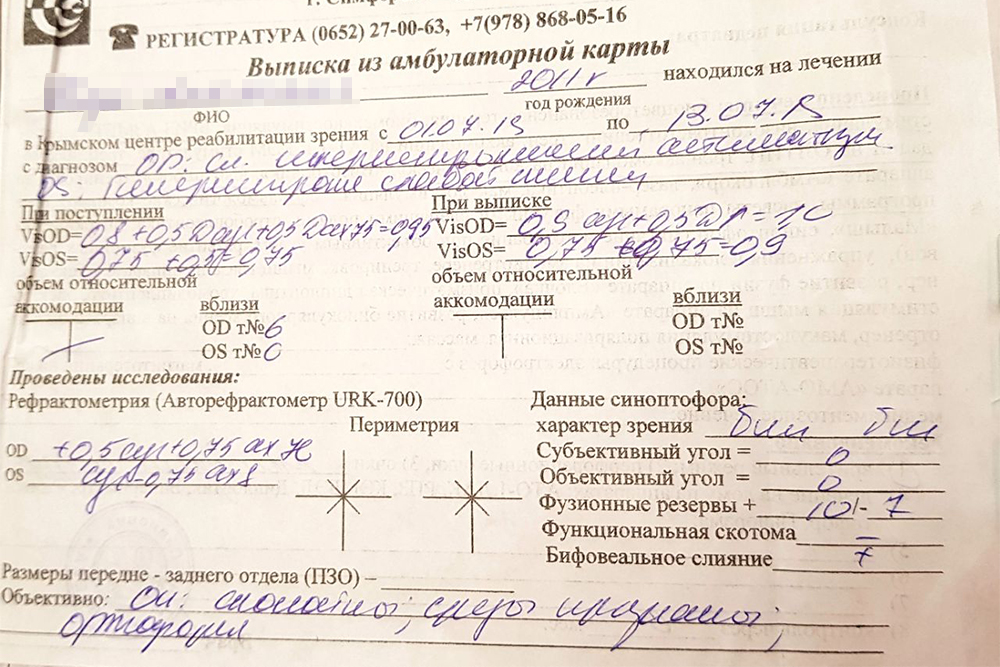 РЕГИСТРАТУРА (0652) 27-00-63, +7(978) 868-05-16
Выписка из амбулаторной карты
2011 г находился на лечении
ФИО год рождения
в Крымском центре реабилитации зрения с 01.07.19 по 13.07.19
с диагнозом OD: Сл. гиперметропический астигматизм.
OS: Гиперметропия слабой степени
При поступлении При выписке
VisOD= 0,8 +0,5D cyl+0,5D ax75=0,95 VisOD= 0,9 cyl+0,5D =1,0
VisOS= 0,75 +0,5=0,75 VisOS= 0,75 +0,75=0,9
объем относительной объем относительной
аккомодации вблизи аккомодации вблизи
OD т№6 OD т№
OS т№6 OS т№
Проведены исследования:
Рефрактометрия (Авторефрактометр URK-700) Данные синоптофора:
Периметрия характер зрения бин бин
OD +0,5 cyl+0,75 ax Субъективный угол = 0
OS cyl-0,75 ax Объективный угол = 0
Фузионные резервы + 10/- 7
Функциональная скотома –
Бифовеальное слияние +
Размеры передне - заднего отдела (ПЗО) –
Объективно: ОИ: спокойны; среды прозрачны;
ортофория